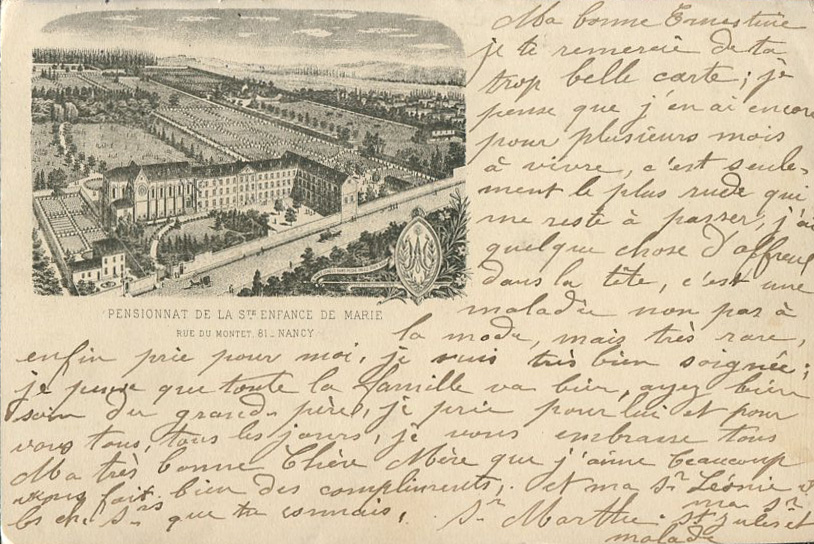 Ma bonne Ernestine
je te remercie de ta
trop belle carte; je
pense que j'en ai encore
pour plusieurs mois
à vivre, c'est seule-
ment le plus rude qui
me reste à passer, j'ai
quelque chose d'affreux
dans la tête, c'est une
maladie non pas à
la mode, mais très rare,
PENSIONNAT DE LA STE ENFANCE DE MARIE
RUE DU MONTET, 81_ NANCY
enfin prie pour moi, je suis très bien soignée;
je pense que toute la famille va bien, ayez bien
soin du grand-père, je prie pour lui et pour
vous tous, tous les jours, je vous embrasse tous
Ma très bonne Chère Mère que j'aime beaucoup
vous fait bien des compliments, et ma Sr Léonie
les ch. Srs que tu connais, ma Sr
Sr Marthe St Jules et
malade